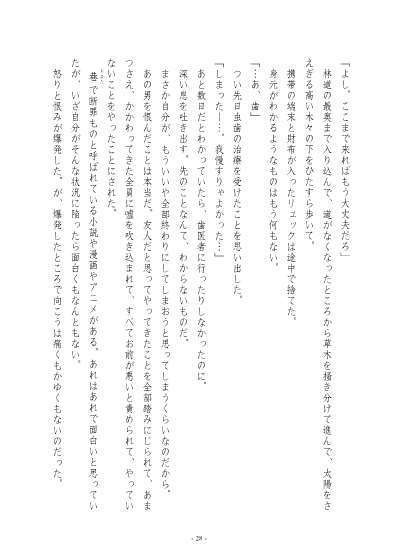 「よし。ここまで来ればもう大丈夫だろ」
林道の最奥まで入り込んで、道がなくなったところから草木を掻き分けて進んで、太陽をさ
えぎる高い木々の下をひたすら歩いて。
携帯の端末と財布が入ったリュックは途中で捨てた。
身元がわかるようなものはもう何もない。
「…あ、歯」
つい先日虫歯の治療を受けたことを思い出した。
「しまったー…、我慢すりゃよかった…」
あと数日だとわかっていたら、歯医者に行ったりしなかったのに。
深い息を吐き出す。先のことなんて、わからないものだ。
まさか自分が、もういいや全部終わりにしてしまおうと思ってしまうくらいなのだから。
あの男を恨んだことは本当だ。友人だと思ってやってきたことを全部踏みにじられて、あま
つさえ、かかわってきた全員に嘘を吹き込まれて、すべてお前が悪いと責められて、やってい
ないことをやったことにされた。
巷で断罪ものと呼ばれている小説や漫画やアニメがある。あれはあれで面白いと思ってい
たが、いざ自分がそんな状況に陥ったら面白くもなんともない。
怒りと恨みが爆発した。が、爆発したところで向こうは痛くもかゆくもないのだった。
- 28 -